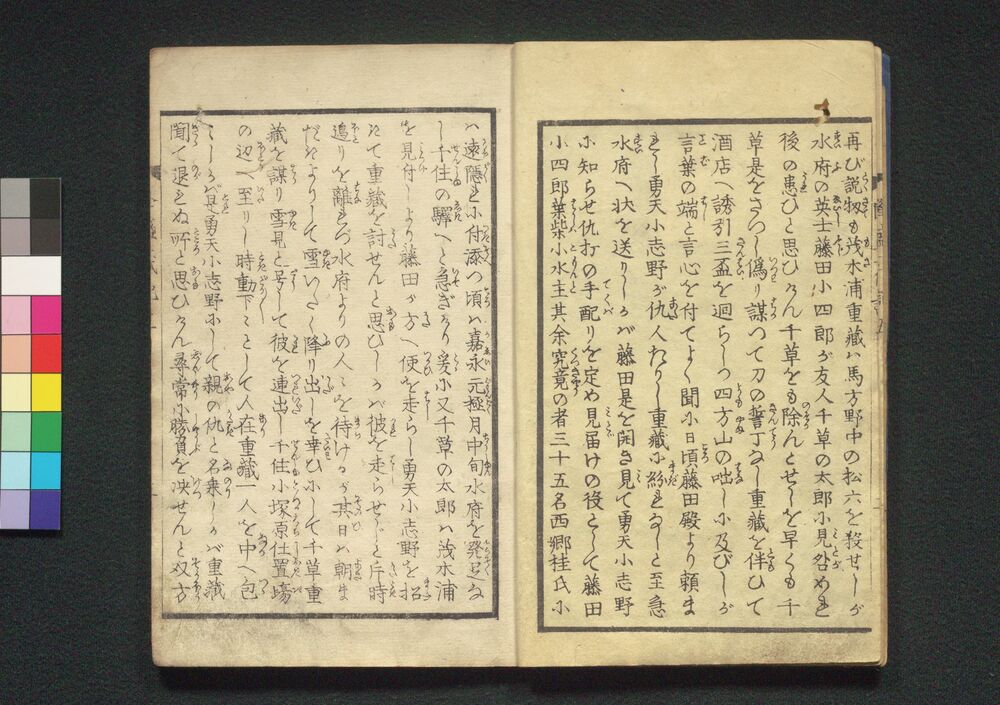 再び説物も浅水浦重藏ハ馬方野中の松六を殺せしが
水府の英士藤田小四郎が友人千草の太郎に見咎められ
後の患ひと思ひけん千草をも除んとせしを早くも千
草是をさつし偽り謀つて刀の誓丁なし重藏を伴ひて
酒店へ誘引三盃を廻らしつ四方山の咄しに及びしが
言葉の端と言心を付てよく聞に日頃藤田殿より頼ま
れし勇天小志野が仇人なりし重藏に紛れなしと至急
水府へ状を送りしが藤田是を開き見て勇天小志野
に知らせ仇打の手配りを定め見届けの役として藤田
小四郎葉柴小水主其余究竟の者三十五名西郷桂氏に
ハ遠隠れに付添つ頃ハ嘉永元極月中旬水府を発足な
し千住の驛へと急ぎける爰に又千草の太郎ハ浅水浦
を見付しより藤田が方へ便を走らし勇天小志野を招
きて重藏を討せんと思ひしが彼を走らせじと片時
邉りを離れず水府よりの人々を待けるが其日ハ朝ま
だきよりして雪いたく降り出しを幸ひにして千草重
藏を謀り雪見と号して彼を連出し千住小塚原仕置場
の辺へ至りし時動下々として人在重藏一人を中へ包
みしが是勇天小志野にして親の仇と名乗りしが重藏
聞て退れぬ所と思ひけん尋常に勝負を决せんと双方